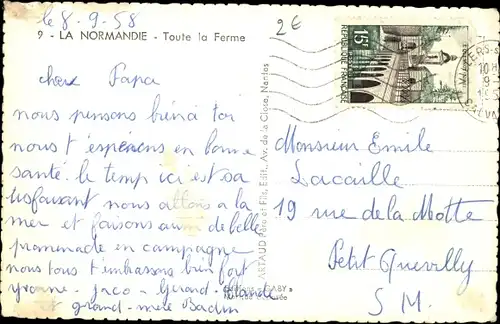 le 8.9.58
2€
9 - LA NORMANDIE - Toute la Ferme
cher Papa
nous pensons bien à toi
nous t'éspérons en bonne
santé. le temp ici est sa
tisfaisant nous allons a la
mer et faisons aussi de belle
promenade en campagne
nous tous t'embrassons bien fort
Yvonne - Jaco - Gérard -
et grand-mère Badin
ARTAUD Père et Fils, Edit., Av. de la Close, Nantes
15F
REPUBLIQUE FRANÇAISE
Monsieur Emile
Lacaille
19 rue de la Motte
Petit Quevilly
S M.